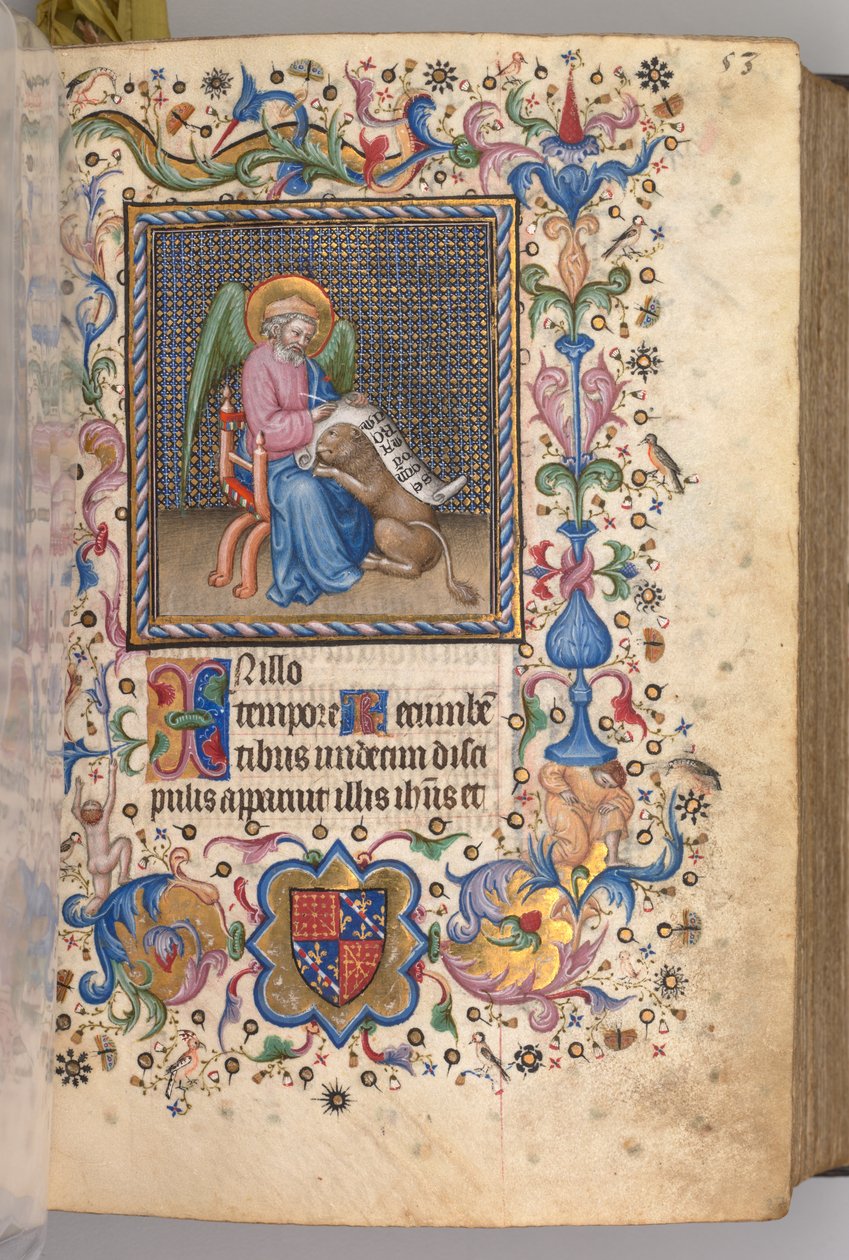 53
In illo
tempore Recumbē
tibus undecim disci
pulis apparuit illis ih̄us et